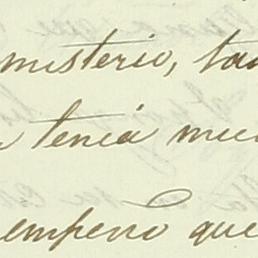 misterio, ta
tenia muc
empeño que